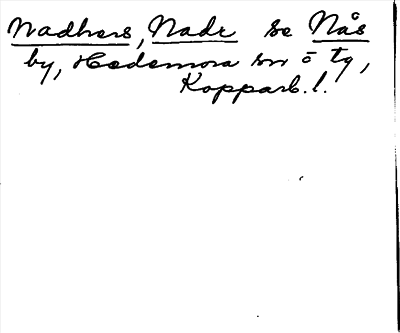 Nadhers, Nadr se Nås
by, Hedemora sn o tg,
Kopparb. l.